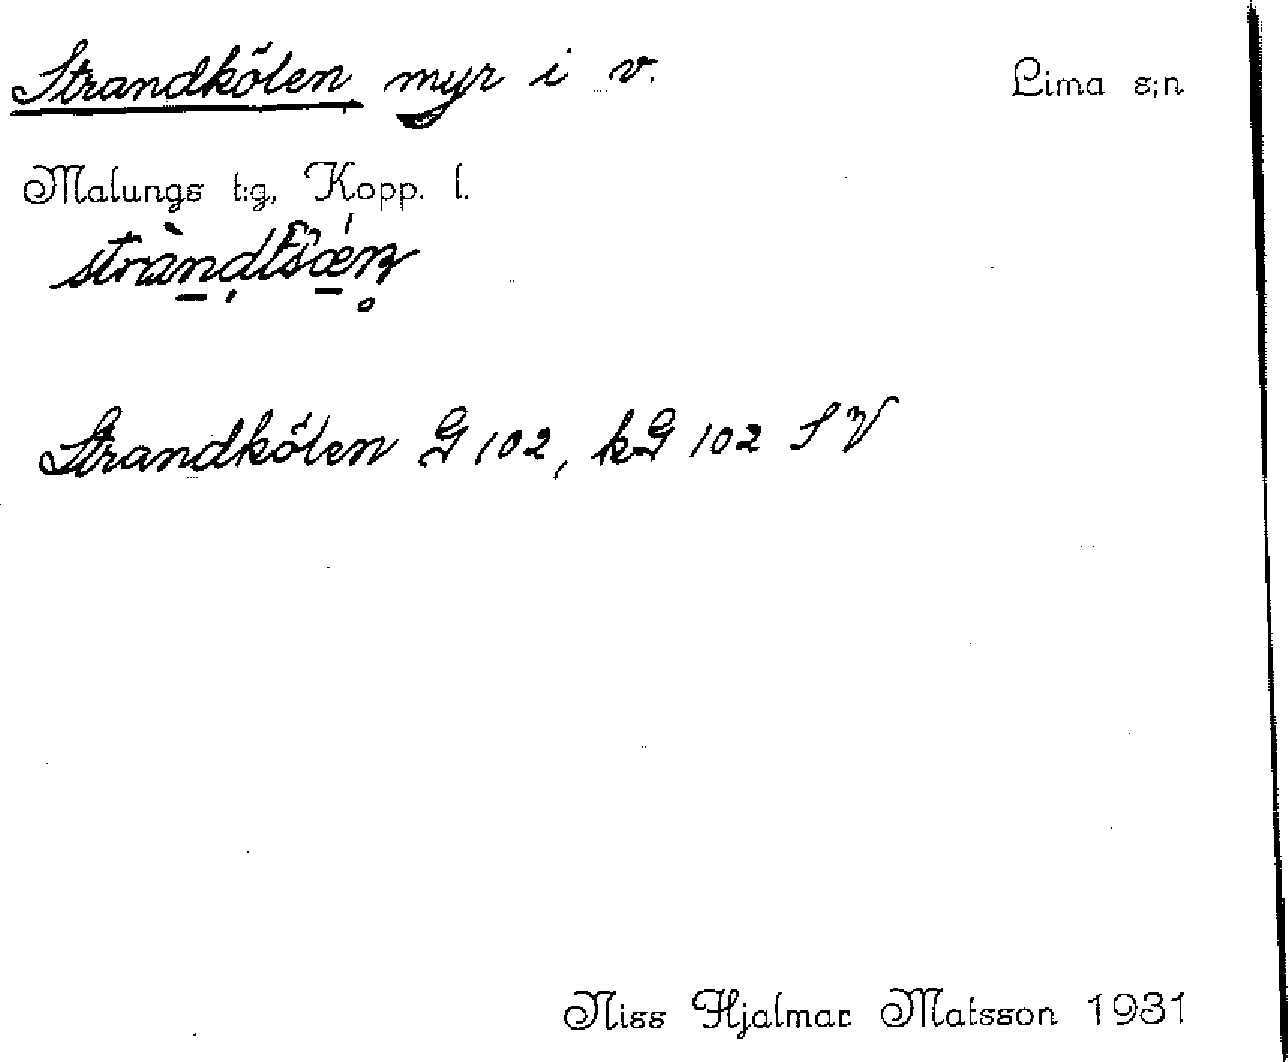 Strandkölen myr i v. Lima s;n
Malungs t:g, Kopp. l.
Strandkölen G 102, kG 102 SV
Niss Hjalmar Matsson 1931